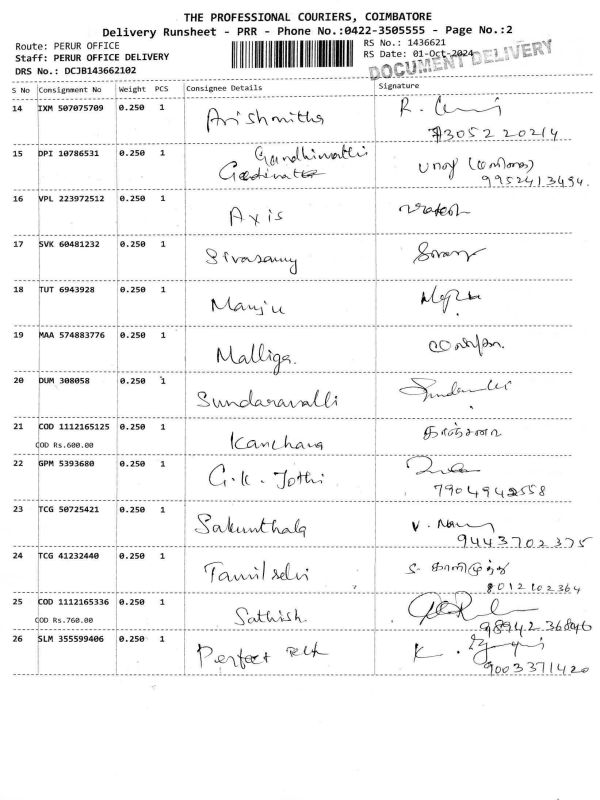 THE PROFESSIONAL COURIERS, COIMBATORE
Delivery Runsheet - PRR - Phone No.:0422-3505555 - Page No.:2
Route: PERUR OFFICE
Staff: PERUR OFFICE DELIVERY
DRS No.: DCJB143662102
RS No.: 1436621
RS Date: 01-Oct-2024
DOCUMENT DELIVERY
S No Consignment No Weight PCS Consignee Details Signature
14 IXM 507075709 0.250 1 Arishmitha R.
7305220214
15 DPI 10786531 0.250 1 Gandhimathi
9952413494.
16 VPL 223972512 0.250 1 Axis
17 SVK 60481232 0.250 1 Sivasamy
18 TUT 6943928 0.250 1 Manju
19 MAA 574883776 0.250 1 Malliga.
20 DUM 308058 0.250 1 Sundaravalli
21 COD 1112165125 0.250 1 Kanchana காஞ்சனா
COD Rs.600.00
22 GPM 5393680 0.250 1 G.K. Jothi
7904942558
23 TCG 50725421 0.250 1 Sakunthala V.
9443702375
24 TCG 41232440 0.250 1 Tamilselvi
8012102364
25 COD 1112165336 0.250 1 Sathish.
COD Rs.760.00
9894236846
26 SLM 355599406 0.250 1 Perfect K.
9003371420